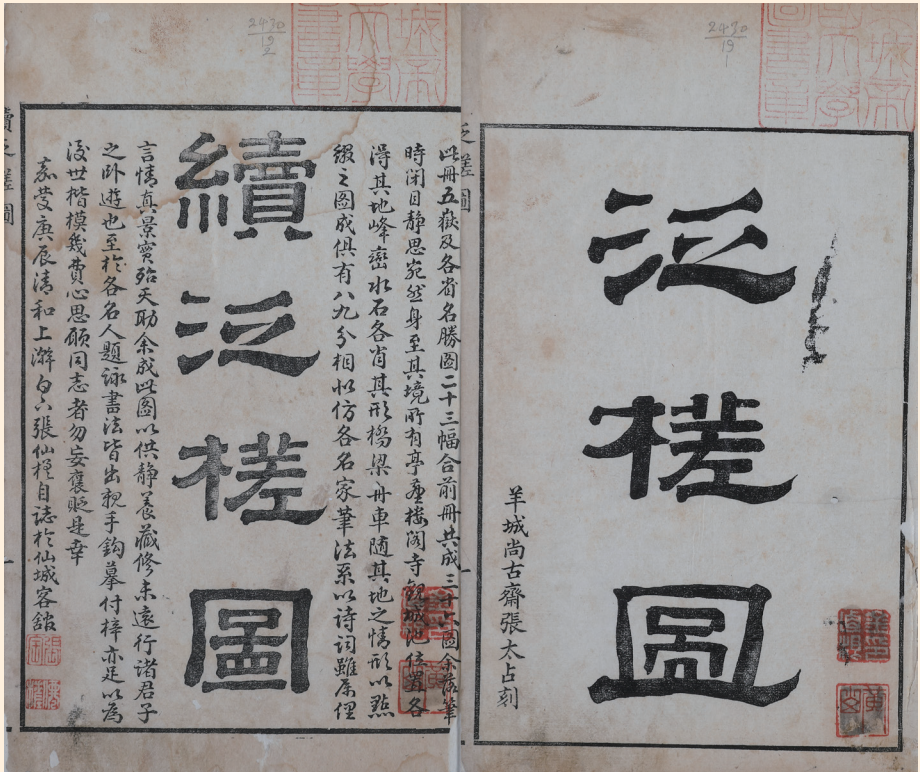 2430
19
1
城帝
國大學
圖書章
泛槎圖
羊城尚古齋張太占刻
2430
19
2
城帝
大學
書章
此冊五嶽及各省名勝圖二十三幅合前冊共成三十六圖余落筆
時閉目靜思宛然身至其境所有亭臺樓閣寺觀城池位置各
得其地峰巒水石各肖其形橋梁舟車隨其地之情形以點
綴之圖成俱有八九分相似仿各名家筆法系以詩詞雖屬俚
續泛槎圖
言情真景實殆天助余成此圖以供靜養藏修未遠行諸君子
之臥遊也至於各名人題詠書法皆出親手鈎摹付梓亦足以為
後世楷模幾費心思願同志者勿妄褒貶是幸
嘉慶庚辰清和上澣白下張仙槎自誌於仙城客館
續泛槎圖
一